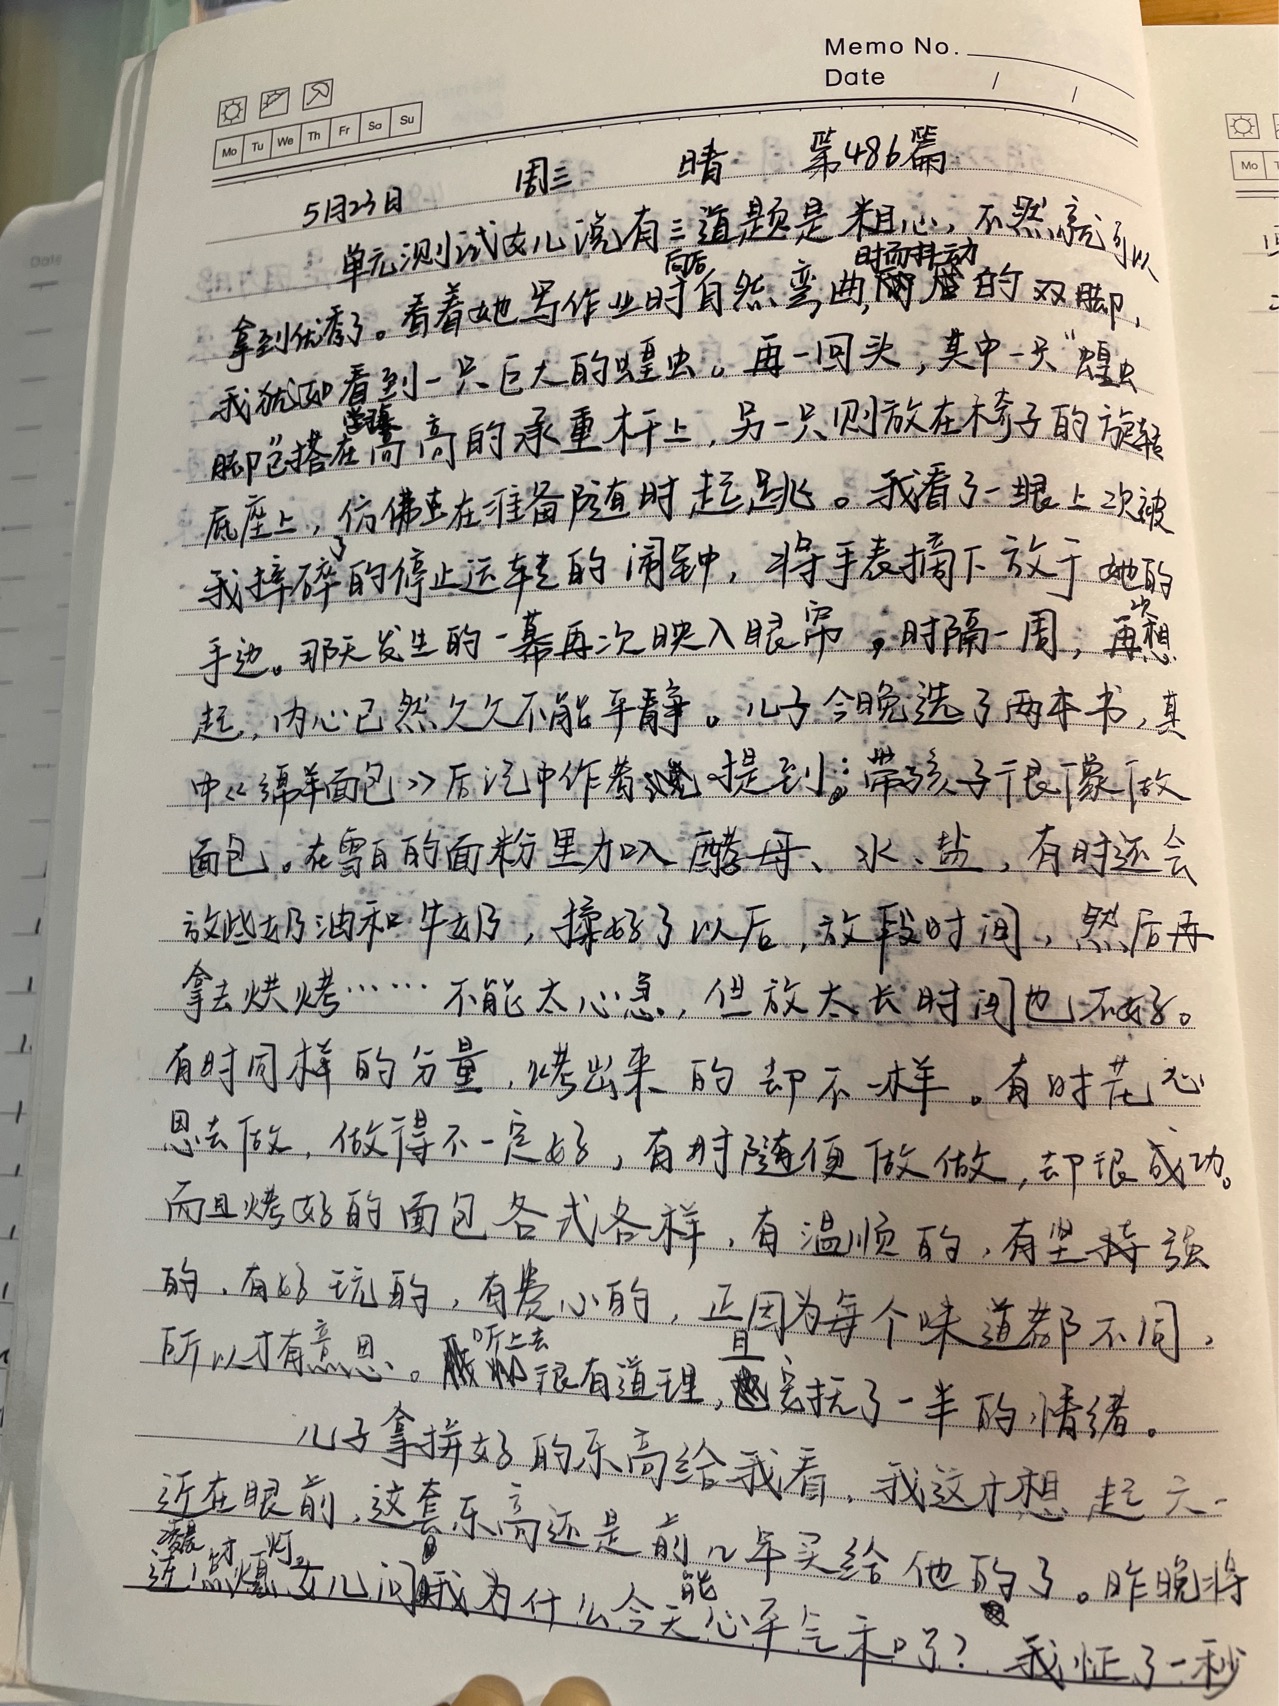 Memo No.
Date / /
Mo Tu We Th Fr Sa Su
Mo
5月23日 周三 晴 第486篇
单元测试女儿说有三道题是粗心，不然就可以
拿到优秀了。看着她写作业时向后自然弯曲，时而抖动的双脚，
我犹如看到一只巨大的蝗虫。再一回头，其中一只“蝗虫
脚”已搭在高高的承重杆上，另一只则放在椅子的旋转
底座上，仿佛在准备随时起跳。我看了一眼上次被
我摔碎了的停止运转的闹钟，将手表摘下放于她的
手边。那天发生的一幕再次映入眼帘，时隔一周，再次想
起，内心已然久久不能平静。儿子今晚选了两本书，其
中《绵羊面包》后记中作者提到：带孩子很像做
面包。在雪白的面粉里加入酵母、水、盐，有时还会
放些奶油和牛奶，揉好了以后，放段时间，然后再
拿去烘烤……不能太心急，但放太长时间也不好。
有时同样的分量，烤出来的却不一样。有时花心
思去做，做得不一定好，有时随便做做，却很成功。
而且烤好的面包各式各样，有温顺的，有坚强
的，有好玩的，有费心的，正因为每个味道都不同，
所以才有意思。听上去很有道理，且安抚了一半的情绪。
儿子拿拼好的乐高给我看，我这才想起六一
近在眼前，这套乐高还是前几年买给他的了。昨晚将
近凌晨才熄灯。女儿问我为什么今天能心平气和了？我怔了一秒